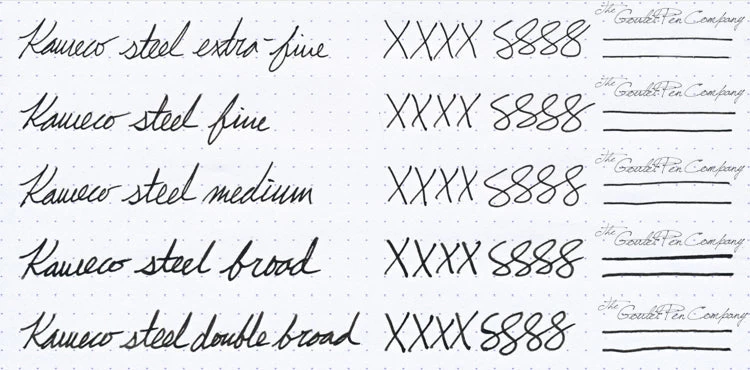 Kaweco steel extra-fine XXXX 8888 The Goulet Pen Company
Kaweco steel fine XXXX 8888 The Goulet Pen Company
Kaweco steel medium XXXX 8888 The Goulet Pen Company
Kaweco steel broad XXXX 8888 The Goulet Pen Company
Kaweco steel double broad XXXX 8888 The Goulet Pen Company